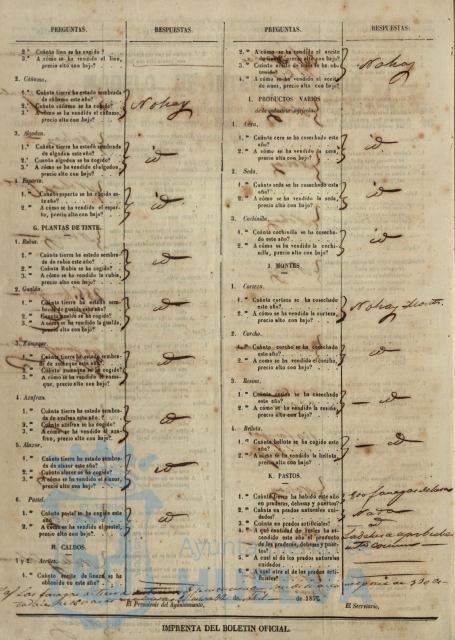 PREGUNTAS.
RESPUESTAS.
2.ª Cuánto lino se ha cogido?
3.ª A cómo se ha vendido el lino, precio alto con bajo?
2. Cáñamo.
1.ª Cuánta tierra ha estado sembrada de cáñamo este año?
2.ª Cuánto cáñamo se ha cogido?
3.ª A cómo se ha vendido el cáñamo, precio alto con bajo?
No hay
3. Algodon.
1.ª Cuánta tierra ha estado sembrada de algodon este año?
2.ª Cuánto algodon se ha cogido?
3.ª A cómo se ha vendido el algodon, precio alto con bajo?
id
4. Esparto.
1.ª Cuánto esparto se ha cogido este año?
2.ª A cómo se ha vendido el esparto, precio alto con bajo?
id
G. PLANTAS DE TINTE.
1. Rubia.
1.ª Cuánta tierra ha estado sembrada de rubia este año?
2.ª Cuánta Rubia se ha cogido?
3.ª A cómo se ha vendido la rubia, precio alto con bajo?
id
2. Gualda.
1.ª Cuánta tierra ha estado sembrada de gualda este año?
2.ª Cuánta gualda se ha cogido?
3.ª A cómo se ha vendido la gualda, precio alto con bajo?
id
3. Zumaque.
1.ª Cuánta tierra ha estado sembrada de zumaque este año?
2.ª Cuánto zumaque se ha cogido?
3.ª A cómo se ha vendido el zumaque, precio alto con bajo?
id
4. Azafran.
1.ª Cuánta tierra ha estado sembrada de azafran este año?
2.ª Cuánto azafran se ha cogido?
3.ª A cómo se ha vendido el azafran, precio alto con bajo?
id
5. Alazor.
1.ª Cuánta tierra ha estado sembrada de alazor este año?
2.ª Cuánto alazor se ha cogido?
3.ª A cómo se ha vendido el alazor, precio alto con bajo?
id
6. Pastel.
1.ª Cuánto pastel se ha cogido este año?
2.ª A cómo se ha vendido el pastel, precio alto con bajo?
id
H. CALDOS.
1 y 2. Aceites.
1.ª Cuánto aceite de linaza se ha obtenido en este año?
PREGUNTAS.
RESPUESTAS.
2.ª A cómo se ha vendido el aceite de linaza, precio alto con bajo?
3.ª Cuánto aceite de nuez se ha obtenido?
4.ª A cómo se ha vendido el aceite de nuez, precio alto con bajo?
No hay
I. PRODUCTOS VARIOS
de la industria agrícola.
1. Cera.
1.ª Cuánta cera se ha cosechado este año?
2.ª A cómo se ha vendido la cera, precio alto con bajo?
id
2. Seda.
1.ª Cuánta seda se ha cosechado este año?
2.ª A cómo se ha vendido la seda, precio alto con bajo?
id
3. Cochinilla.
1.ª Cuánta cochinilla se ha cosechado este año?
2.ª A cómo se ha vendido la cochinilla, precio alto con bajo?
id
J. MONTES.
1. Corteza.
1.ª Cuánta corteza se ha cosechado este año?
2.ª A cómo se ha vendido la corteza, precio alto con bajo?
No hay
2. Corcho.
1.ª Cuánto corcho se ha cosechado este año?
2.ª A cómo se ha vendido el corcho, precio alto con bajo?
id
3. Resina.
1.ª Cuánta resina se ha cosechado este año?
2.ª A cómo se ha vendido la resina, precio alto con bajo?
id
4. Bellota.
1.ª Cuánta bellota se ha cogido este año?
2.ª A cómo se ha vendido la bellota, precio alto con bajo?
id
K. PASTOS.
1.ª Cuánta tierra ha habido este año en praderas, dehesas y puertos?
2.ª Cuánta en prados naturales cuidados?
3.ª Cuánta en prados artificiales?
4.ª A qué cantidad de reales ha ascendido este año el producto de las praderas, dehesas y puertos?
5.ª A cual el de los prados naturales cuidados?
6.ª A cual el de los prados artificiales?
300 fanegas
Nada
id
El Presidente del Ayuntamiento,
de 1857.
El Secretario,
IMPRENTA DEL BOLETIN OFICIAL